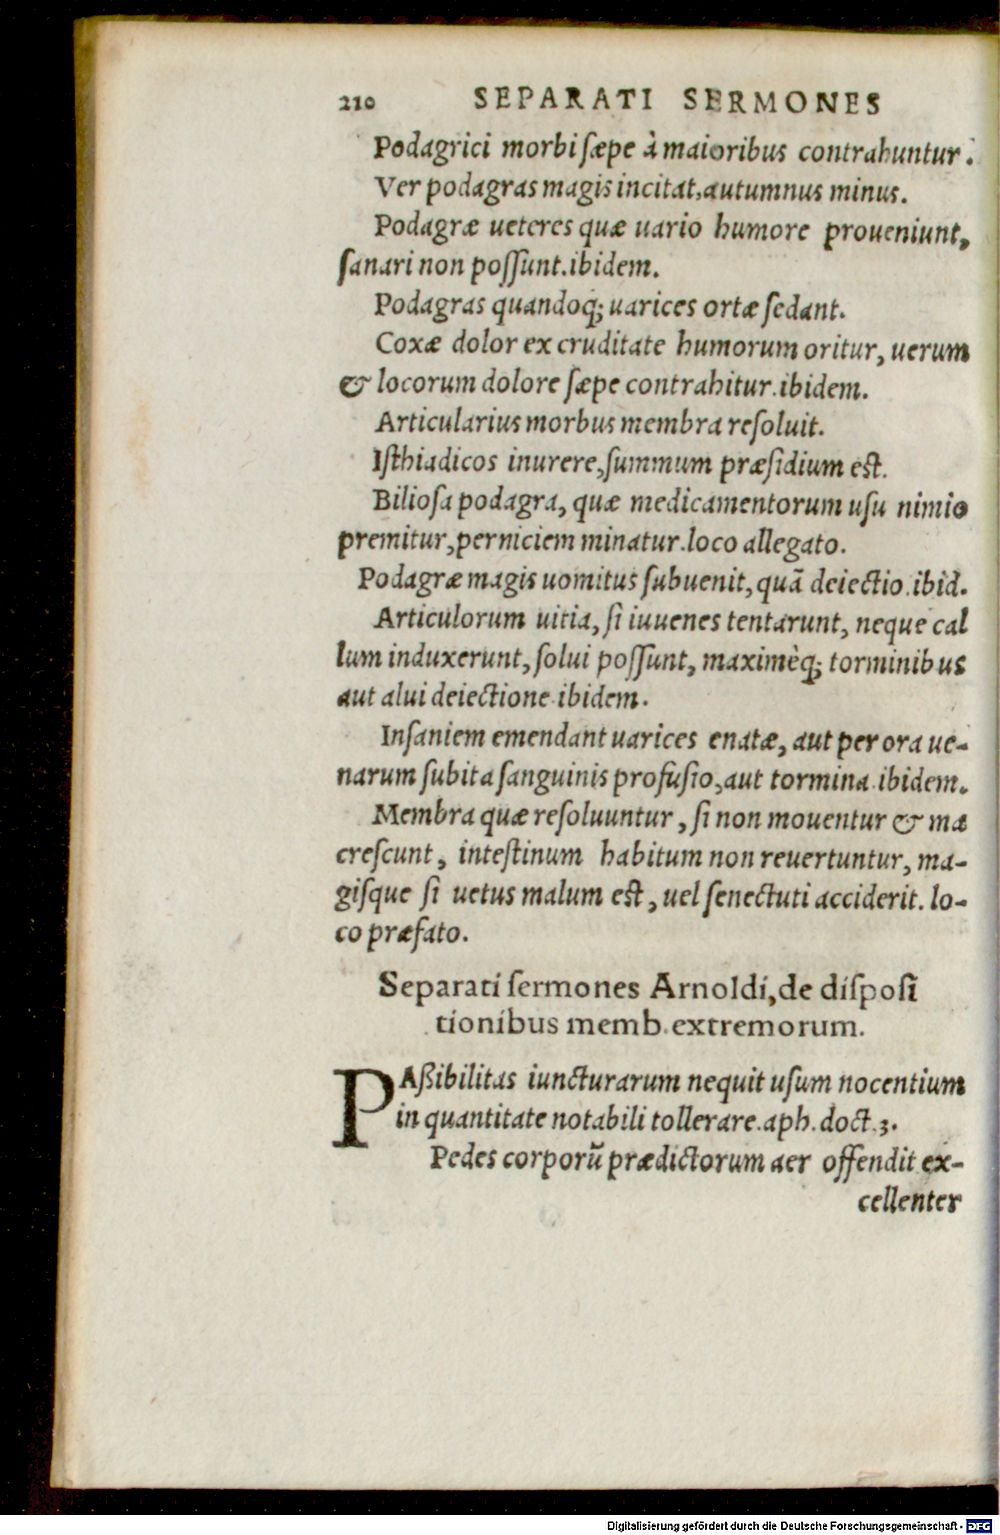 210 SEPARATI SERMONES
Podagrici morbi sæpe à maioribus contrahuntur.
Ver podagras magis incitat, autumnus minus.
Podagræ ueteres quæ uario humore proueniunt,
sanari non possunt. ibidem.
Podagras quandoq; uarices ortæ sedant.
Coxæ dolor ex cruditate humorum oritur, uerum
& locorum dolore sæpe contrahitur. ibidem.
Articularius morbus membra resoluit.
Isthiadicos inurere, summum præsidium est.
Biliosa podagra, quæ medicamentorum usu nimio
premitur, perniciem minatur. loco allegato.
Podagræ magis uomitus subuenit, quā deiectio. ibid.
Articulorum uitia, si iuuenes tentarunt, neque cal
lum induxerunt, solui possunt, maximèq; torminibus
aut alui deiectione ibidem.
Insaniem emendant uarices enatæ, aut per ora ue-
narum subita sanguinis profusio, aut tormina. ibidem.
Membra quæ resoluuntur, si non mouentur & ma
crescunt, intestinum habitum non reuertuntur, ma-
gisque si uetus malum est, uel senectuti acciderit. lo-
co præfato.
Separati sermones Arnoldi, de disposi
tionibus memb. extremorum.
PAßibilitas iuncturarum nequit usum nocentium
in quantitate notabili tollerare. aph. doct. 3.
Pedes corporū prædictorum aer offendit ex-
cellenter
Digitalisierung gefördert durch die Deutsche Forschungsgemeinschaft - DFG